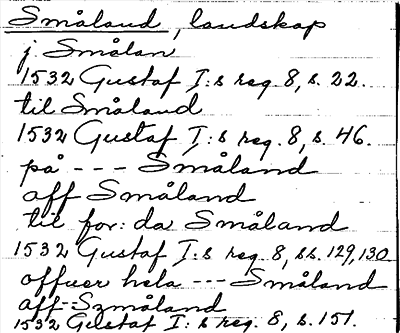 Småland, landskap
j Smålan
1532 Gustaf I:s reg. 8, s. 22.
til Småland
1532 Gustaf I:s reg. 8, s. 46.
på --- Småland
aff Småland
til for:da Småland
1532 Gustaf I:s reg. 8, ss. 129, 130
offuer hela --- Småland
aff -- Szmåland
1532 Gustaf I:s reg. 8, s. 151.